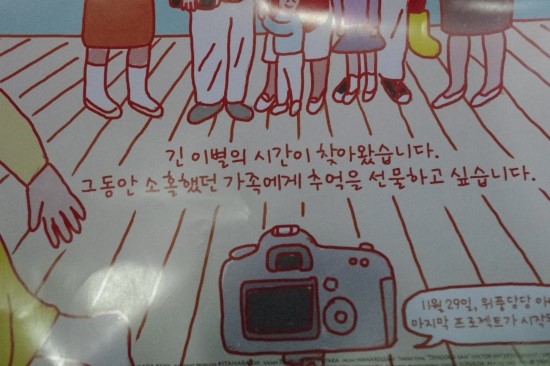 긴 이별의 시간이 찾아왔습니다.
그동안 소홀했던 가족에게 추억을 선물하고 싶습니다.
11월 29일, 위풍당당
마지막 프로젝트가